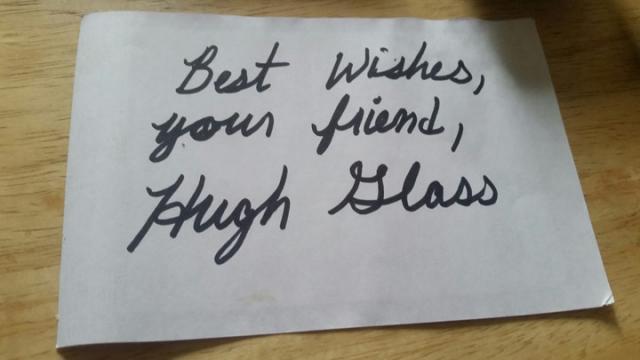 Best Wishes,
your friend,
Hugh Glass